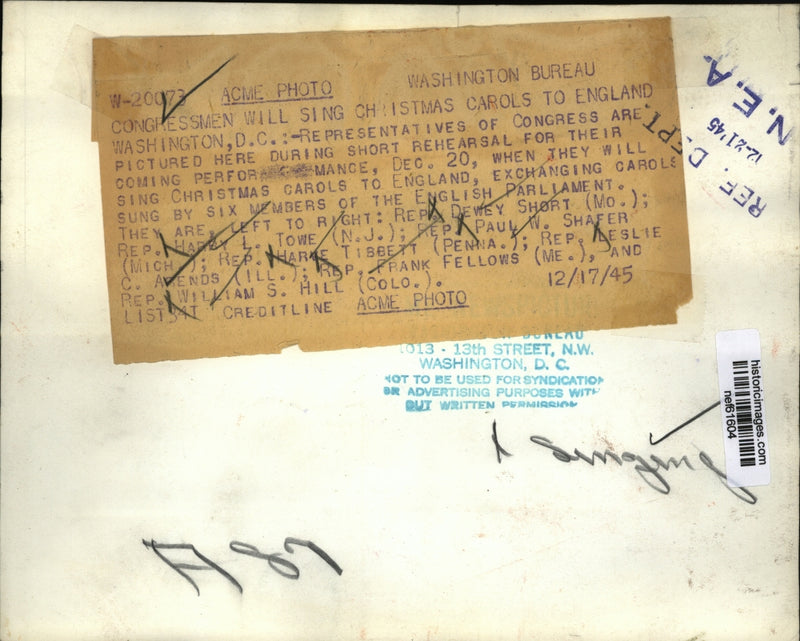 W-20073 ACME PHOTO WASHINGTON BUREAU
CONGRESSMEN WILL SING CHRISTMAS CAROLS TO ENGLAND
WASHINGTON, D.C.:-REPRESENTATIVES OF CONGRESS ARE
PICTURED HERE DURING SHORT REHEARSAL FOR THEIR
COMING PERFOR MANCE, DEC. 20, WHEN THEY WILL
SING CHRISTMAS CAROLS TO ENGLAND, EXCHANGING CAROLS
SUNG BY SIX MEMBERS OF THE ENGLISH PARLIAMENT.
THEY ARE, LEFT TO RIGHT: REP. DEWEY SHORT (MO.);
REP. HARRY L. TOWE (N.J.); REP. PAUL W. SHAFER
(MICH.); REP. HARVE TIBBETT (PENNA.); REP. LESLIE
C. ARENDS (ILL.); REP. FRANK FELLOWS (ME.), AND
REP. WILLIAM S. HILL (COLO.).
12/17/45
CREDITLINE ACME PHOTO
REF. DEPT.
12-21'45
N.E.A.
BUREAU
1013 - 13th STREET, N.W.
WASHINGTON, D. C.
NOT TO BE USED FOR SYNDICATION
OR ADVERTISING PURPOSES WITH
OUT WRITTEN PERMISSION
historicimages.com
nef61604
Singing